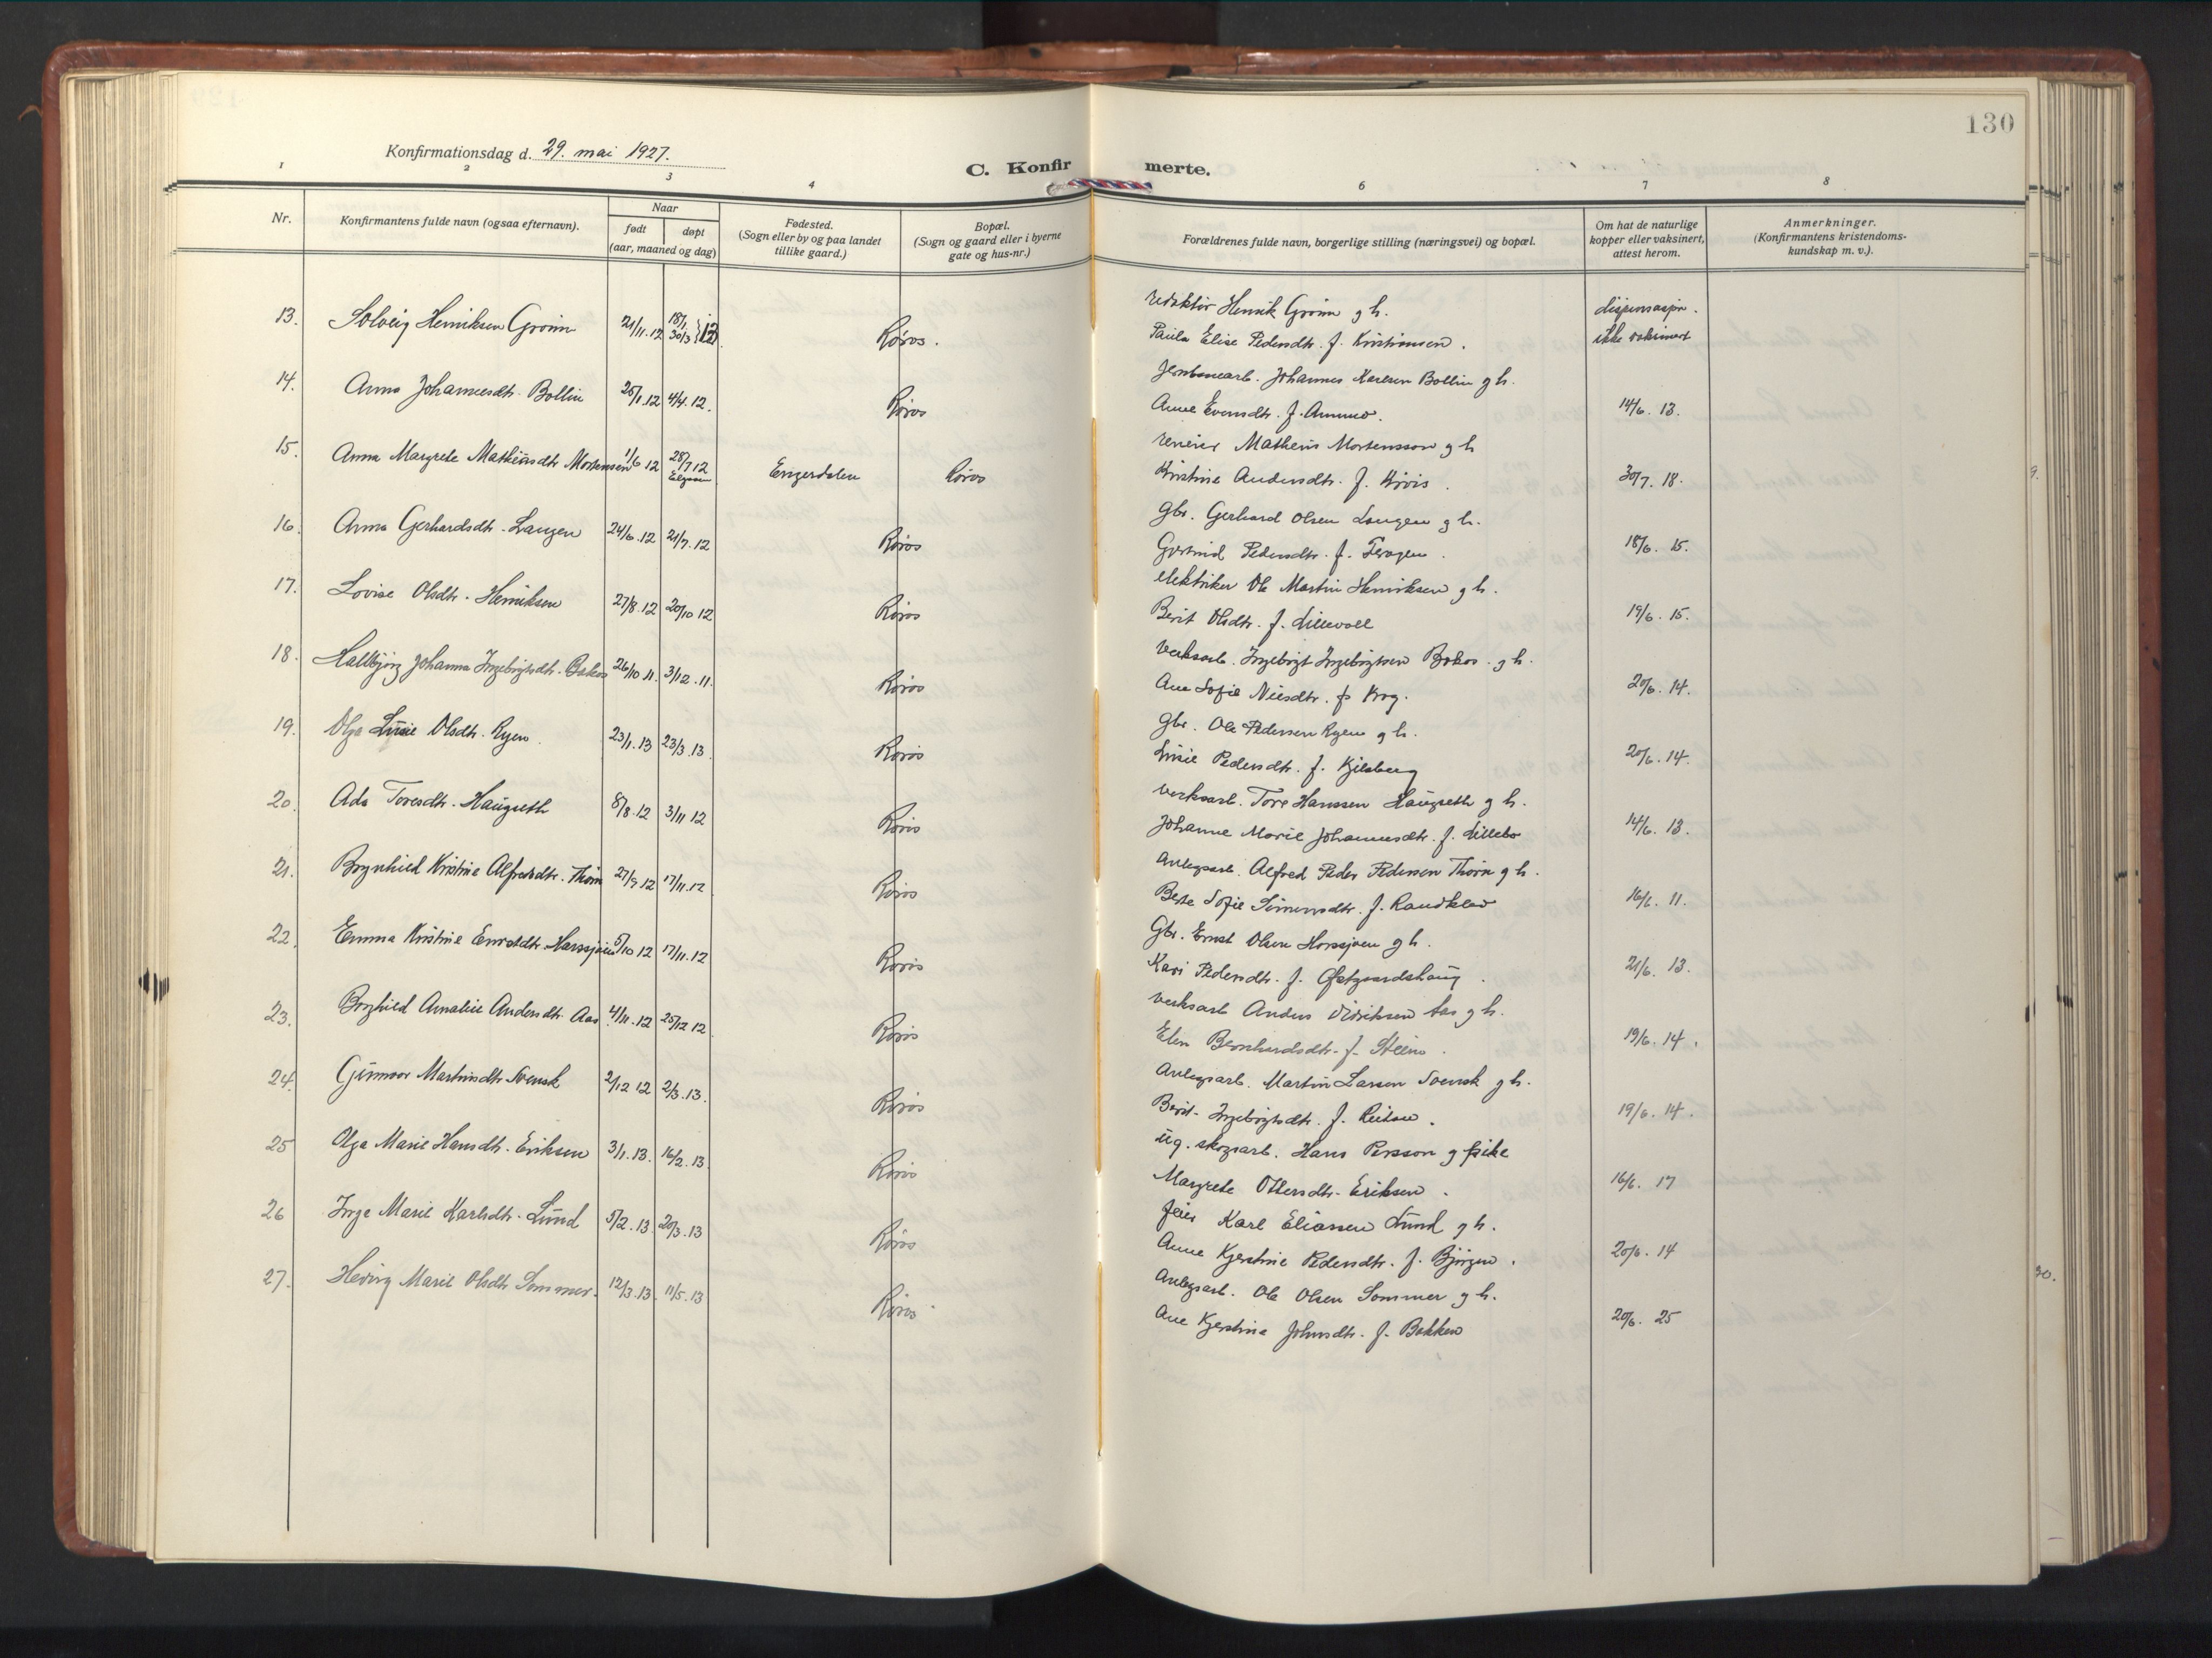 130
Konfirmationsdag d. 29. mai 1927.
C. Konfirmerte.
1 2 3 4 6 7 8
Nr.
Konfirmantens fulde navn (ogsaa efternavn).
Naar
født døpt
(aar, maaned og dag)
Fødested.
(Sogn eller by og paa landet
tillike gaard.)
Bopæl.
(Sogn og gaard eller i byerne
gate og hus-nr.)
Forældrenes fulde navn, borgerlige stilling (næringsvei) og bopæl.
Om hat de naturlige
kopper eller vaksinert,
attest herom.
Anmerkninger.
(Konfirmantens kristendoms-
kundskap m. v.).
13. Solveig Henriksen Grønn 21/11.12 18/1 30/3 } 13 Røros.
redaktør Henrik Grønn g h. dispensasjon.
Paula Elise Pedersdtr. f. Kristiansen. ikke vaksinert
14. Anna Johannesdtr. Bollin 25/1.12 4/4.12. Røros
Jernbanearb. Johannes Karlsen Bollin g h.
Anne Evensdtr. f. Aunmo. 14/6. 13.
15. Anna Margrete Matheüsdtr Mortensen 1/6 12 28/7 12 Engerdalen Røros
Matheus Mortensson g h
Kristine Andersdtr. f. 30/7. 18.
16. Anna Gerhardsdtr. Langen 24/6.12 21/7.12 Røros
Gbr. Gerhard Olsen Langen g h.
Gjertrud Pedersdtr. f. Feragen. 18/6. 15.
17. Lovise Olsdtr. Henriksen 27/8 12 20/10 12 Røros
elektriker Ole Martin Henriksen g h.
Berit Olsdtr. f. Lillevoll 19/6. 15.
18. Hallbjørg Johanna Ingebrigtsdtr. Bakos 26/10 11. 3/12.11. Røros
Verksarb. Ingebrigt Ingebrigtsen Bakos g h.
Ane Sofie Nilsdtr. f. Krog. 20/6. 14.
19. Olga Lusie Olsdtr. Ryen. 23/1.13 23/3.13 Røros
Gbr. Ole Pedersen Ryen g h.
Lusie Pedersdtr. f. Kjelsberg 20/6. 14.
20. Ada Toresdtr. Haugseth 8/8.12 3/11 12 Røros
Verksarb. Tore Hanssen Haugseth g h.
Johanne Marie Johannesdtr. f. Lillebo 14/6. 13.
21. Brynhild Kristine Alfredsdtr. Thorn 27/9 12 17/11.12. Røros
Anlegsarb. Alfred Peder Pedersen Thorn g h.
Berte Sofie Simensdtr. f. Randklev 16/6. 11.
22. Emma Kristine Ernstdtr. Harsjøen 5/10 12 17/11.12 Røros
Gbr. Ernst Olsen Harsjøen g h.
Kari Pedersdtr. f. Østgaardshaug. 21/6. 13.
23. Borghild Amalie Andersdtr. Aas 4/11.12 25/12 12 Røros
Verksarb Anders Didriksen Aas g h.
Elen Bernhardsdtr. f. Steens. 19/6. 14.
24. Gunvor Martinsdtr Svensk 2/12 12 2/3.13. Røros
Anlegsarb. Martin Larsen Svensk g h.
Berit Ingebrigtsdtr. f. Reitan. 19/6. 14.
25 Olga Marie Hansdtr. Eriksen 3/1.13. 16/2.13 Røros
ug. skogsarb. Hans Persson g pike
Margrete Ottersdtr. Eriksen. 16/6. 17
26 Inga Marie Karlsdtr. Lund 5/2.13 20/3.13 Røros
feier Karl Eliassen Lund g h.
Anne Kjerstine Pedersdtr. f. Bjørgen. 20/6. 14
27. Hedvig Marie Olsdtr Sommer. 12/3.13. 11/5.13 Røros
Anlegsarb. Ole Olsen Sommer g h.
Ane Kjerstina Johnsdtr. f. Bakken 20/6. 25